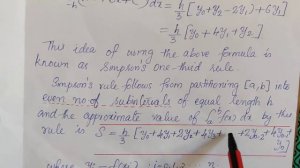 ∫₋ₕ dx = h/3 [y₀ + y₂ - 2y₁) + 6y₁]
= h/3 [y₀ + 4y₁ + y₂]
This idea of using the above formula is
known as Simpson's one-third rule.
Simpson's rule follows from partitioning [a,b] into
even no. of subintervals of equal length h
and the approximate value of ∫ f(x) dx by this
rule is S = h/3 [y₀ + 4y₁ + 2y₂ + 4y₃ + + 2yₙ₋₂ + 4yₙ₋₁ +
yₙ]
where